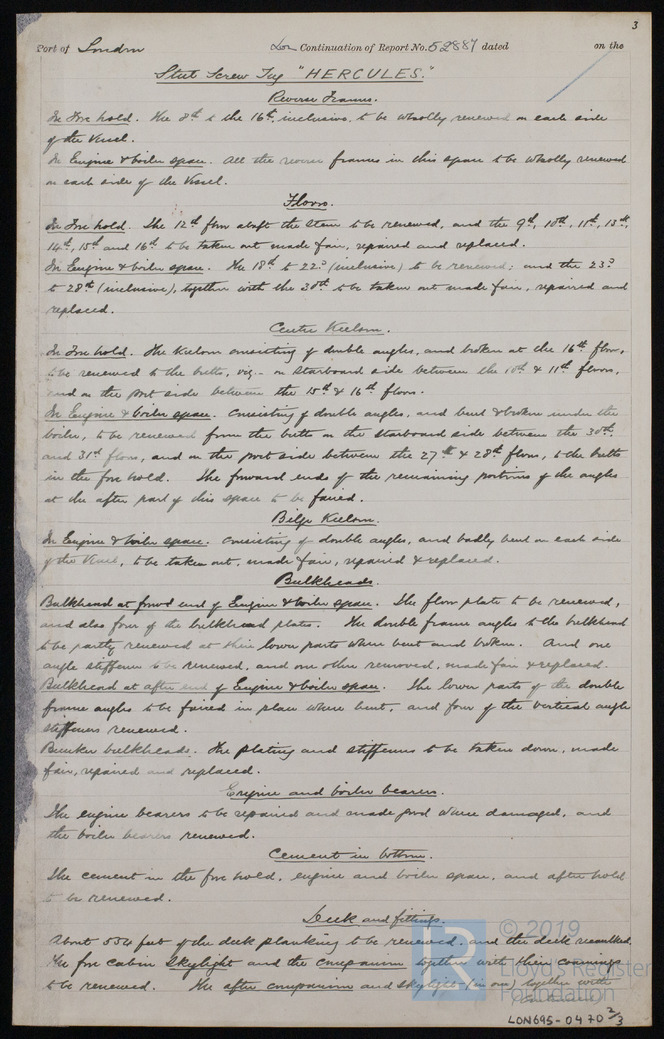 3
Port of London Lon Continuation of Report No. 52887 dated on the
Steel Screw Tug "HERCULES."
Reverse Frames.
In Fore hold. The 8th to the 16th, inclusive, to be wholly renewed on each side
of the Vessel.
In Engine & boiler space. All the reverse frames in this space to be wholly renewed
on each side of the Vessel.
Floors.
In Fore hold. The 12th floor abaft the stem to be renewed, and the 9th, 10th, 11th, 13th,
14th, 15th and 16th to be taken out made fair, repaired and replaced.
In Engine & boiler space. The 18th to 22nd (inclusive) to be renewed; and the 23rd
to 28th (inclusive), together with the 30th to be taken out made fair, repaired and
replaced.
Centre Keelson.
In Fore hold. The Keelson consisting of double angles, and broken at the 16th floor,
to be renewed to the butts, viz – on starboard side between the 10th & 11th floors,
and on the port side between the 15th & 16th floors.
In Engine & boiler space. Consisting of double angles, and bent & broken under the
boiler, to be renewed from the butts on the starboard side between the 30th
and 31st floors, and on the port side between the 27th & 28th floors, to the butts
in the fore hold. The forward ends of the remaining portions of the angles
at the after part of this space to be faired.
Bilge Keelson.
In Engine & boiler space. Consisting of double angles, and badly bent on each side
of the Vessel, to be taken out, made fair, repaired & replaced.
Bulkheads.
Bulkhead at forwd end of Engine & boiler space. The floor plate to be renewed,
and also four of the bulkhead plates. The double frame angles to the bulkhead
to be partly renewed at their lower parts where bent and broken. And one
angle stiffener to be renewed, and one other removed, made fair & replaced.
Bulkhead at after end of Engine & boiler space. The lower parts of the double
frame angles to be faired in place where bent, and four of the vertical angle
stiffeners renewed.
Bunker bulkheads. The plating and stiffeners to be taken down, made
fair, repaired and replaced.
Engine and boiler bearers.
The engine bearers to be repaired and made good where damaged, and
the boiler bearers renewed.
Cement in bottom.
The cement in the fore hold, engine and boiler space, and after hold
to be renewed.
Deck and fittings.
About 550 feet of the deck planking to be renewed, and the deck recaulked.
The fore cabin Skylight and the companion together with their coamings
to be renewed. The after companion and skylight (in one) together with
© 2019
Lloyd's Register
Foundation
LON695-0470 2/3